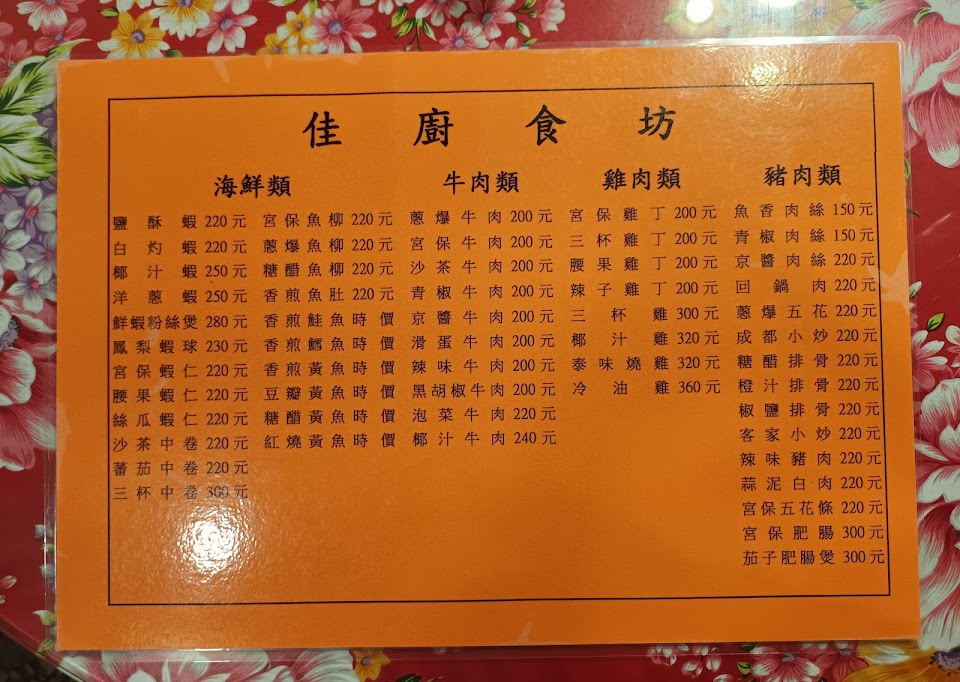 佳廚食坊
海鮮類
鹽酥蝦 220元
白灼蝦 220元
椰汁蝦 250元
洋蔥蝦 250元
鮮蝦粉絲煲 280元
鳳梨蝦球 230元
宮保蝦仁 220元
腰果蝦仁 220元
絲瓜蝦仁 220元
沙茶中卷 220元
蕃茄中卷 220元
三杯中卷 300元
宮保魚柳 220元
蔥爆魚柳 220元
糖醋魚柳 220元
香煎魚肚 220元
香煎鮭魚時價
香煎鱈魚時價
香煎黃魚時價
豆瓣黃魚時價
糖醋黃魚時價
紅燒黃魚時價
牛肉類
蔥爆牛肉 200元
宮保牛肉 200元
沙茶牛肉 200元
青椒牛肉 200元
京醬牛肉 200元
滑蛋牛肉 200元
辣味牛肉 200元
黑胡椒牛肉 200元
泡菜牛肉 220元
椰汁牛肉 240元
雞肉類
宮保雞丁 200元
三杯雞丁 200元
腰果雞丁 200元
辣子雞丁 200元
三杯雞 300元
椰汁雞 320元
泰味燒雞 320元
冷油雞 360元
豬肉類
魚香肉絲 150元
青椒肉絲 150元
京醬肉絲 220元
回鍋肉 220元
蔥爆五花 220元
成都小炒 220元
糖醋排骨 220元
橙汁排骨 220元
椒鹽排骨 220元
客家小炒 220元
辣味豬肉 220元
蒜泥白肉 220元
宮保五花條 220元
宮保肥腸 300元
茄子肥腸煲 300元